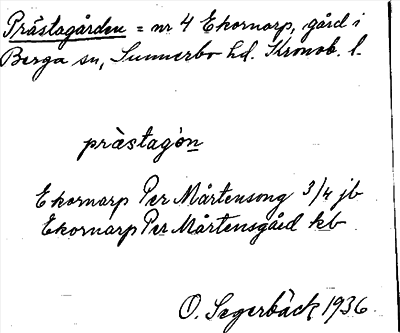 Prästagården = nr 4 Ekornarp, gård i
Berga sn, Sunnerbo hd. Kronob. l.
prästagòn
Ekornarp Per Mårtensong 3/4 jb
Ekornarp Per Mårtensgård kb
O. Segerbäck 1936